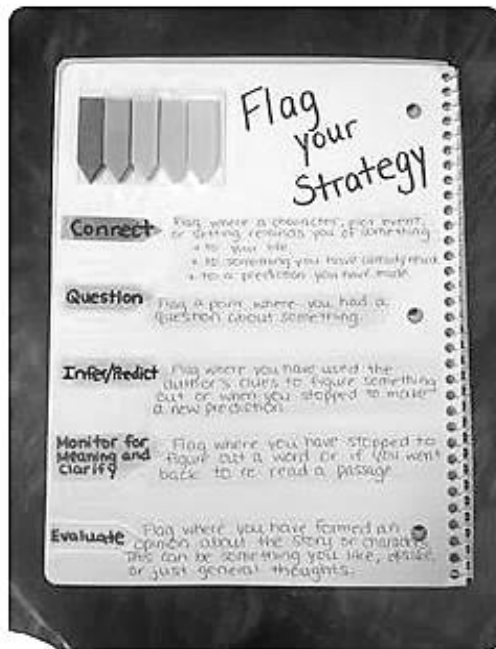 Flag
your
Strategy
Connect Flag where a character, plot event,
or setting reminds you of something
• to your life.
• to something you have already read.
• to a prediction you have made.
Question Flag a point where you had a
question about something.
Infer/Predict Flag where you have used the
author's clues to figure something
out or when you stopped to make
a new prediction.
Monitor for Flag where you have stopped to
Meaning and figure out a word or if you went
Clarify back to re read a passage.
Evaluate Flag where you have formed an
opinion about the story or character.
This can be something you like, dislike,
or just general thoughts.